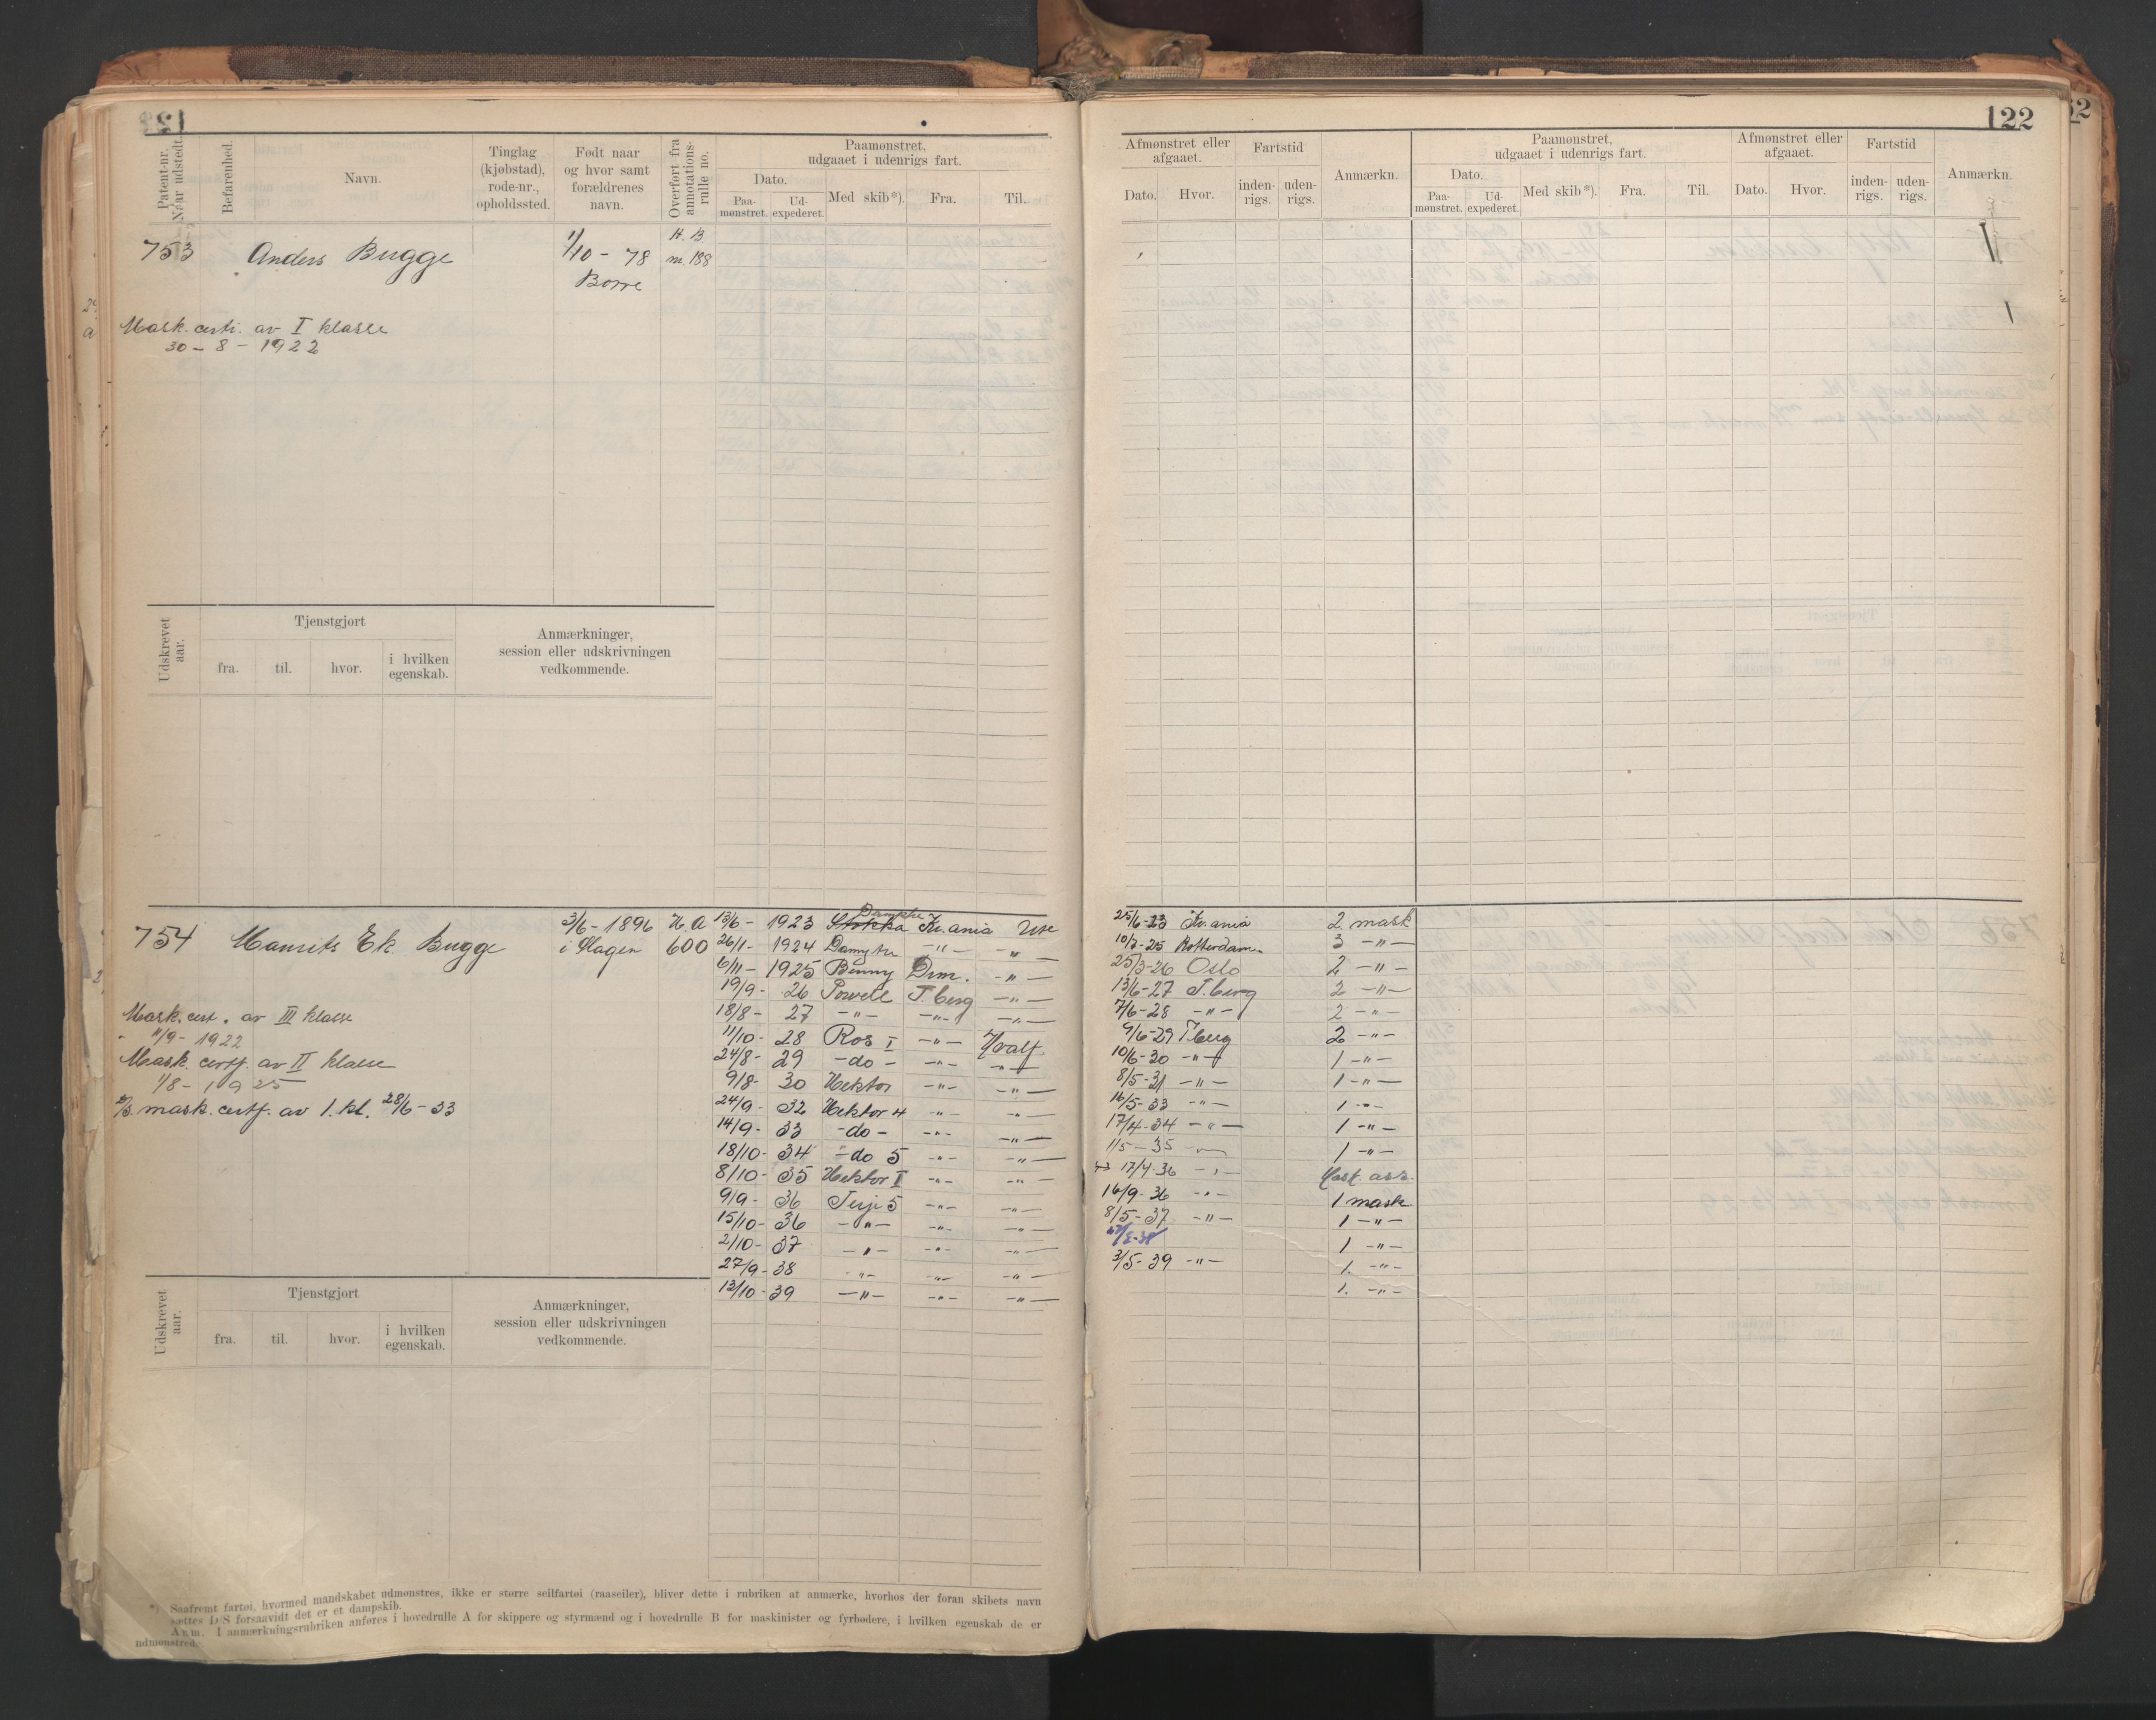 122
Patent-nr. Naar udstedt.
Befarenhed.
Navn.
Tinglag (kjøbstad), rode-nr., opholdssted.
Født naar og hvor samt forældrenes navn.
Overført fra annotations-rulle no.
Paamønstret, udgaaet i udenrigs fart.
Dato.
Paa-mønstret.
Ud-expederet.
Med skib*).
Fra.
Til.
Afmønstret eller afgaaet.
Dato.
Hvor.
Fartstid
inden-rigs.
uden-rigs.
Anmærkn.
Paamønstret, udgaaet i udenrigs fart.
Dato.
Paa-mønstret.
Ud-expederet.
Med skib*).
Fra.
Til.
Afmønstret eller afgaaet.
Dato.
Hvor.
Fartstid
inden-rigs.
uden-rigs.
Anmærkn.
753 Anders Bugge 1/10 - 78 H. B
Borre m. 188
Mask. certi. av I klasse
30 - 8 - 1922
Udskrevet aar.
Tjenstgjort
fra.
til.
hvor.
i hvilken egenskab.
Anmærkninger, session eller udskrivningen vedkommende.
754 Maurits Ek. Bugge 3/6 - 1896 H. A
i Slagen 600
Mask. cert. av III klasse
11/9 - 1922
Mask. certf. av II klasse
1/8 - 1925
mask. certf. av 1. kl. 28/6 - 33
13/6 - 1923 Kr.ania Use 25/6-23 Kr.ania 2. mask
26/1 - 1924 -"- -"- 10/2-25 Rotterdam 3 -"-
6/11 - 1925 Benny Drm. -"- 25/3-26 Oslo 2 -"-
19/9 - 26 Powell T.berg -"- 13/6-27 T.berg 2 -"-
18/8 - 27 -"- -"- -"- 7/6-28 -"- 2 -"-
11/10 - 28 Ros I -"- Hvalf. 9/6-29 T.berg 2 -"-
24/8 - 29 -do- -"- -"- 10/6-30 -"- 1 -"-
9/8 - 30 Hektor -"- -"- 8/5-31 -"- 1 -"-
24/9 - 32 Hektor 4 -"- -"- 16/5-33 -"- 1 -"-
14/9 - 33 -do- -"- -"- 17/4-34 -"- 1 -"-
18/10 - 34 -do 5 -"- -"- 1/5-35 -"- 1 -"-
8/10 - 35 Hektor I -"- -"- 17/4-36 -"- ass.
9/9 - 36 Terje 5 -"- -"- 16/9-36 -"- 1 mask.
15/10 - 36 -"- -"- -"- 8/5-37 -"- 1 -"-
2/10 - 37 -"- -"- -"- 1 -"-
27/9 - 38 -"- -"- -"- 3/5-39 -"- 1. -"-
13/10 - 39 -"- -"- -"- 1. -"-
Udskrevet aar.
Tjenstgjort
fra.
til.
hvor.
i hvilken egenskab.
Anmærkninger, session eller udskrivningen vedkommende.
*) Saafremt fartøi, hvormed mandskabet udmønstres, ikke er større seilfartøi (raaseiler), bliver dette i rubriken at anmærke, hvorhos der foran skibets navn
sættes D/S forsaavidt det er et dampskib.
Anm. I anmærkningsrubriken anføres i hovedrulle A for skippere og styrmænd og i hovedrulle B for maskinister og fyrbødere, i hvilken egenskab de er
udmønstret.